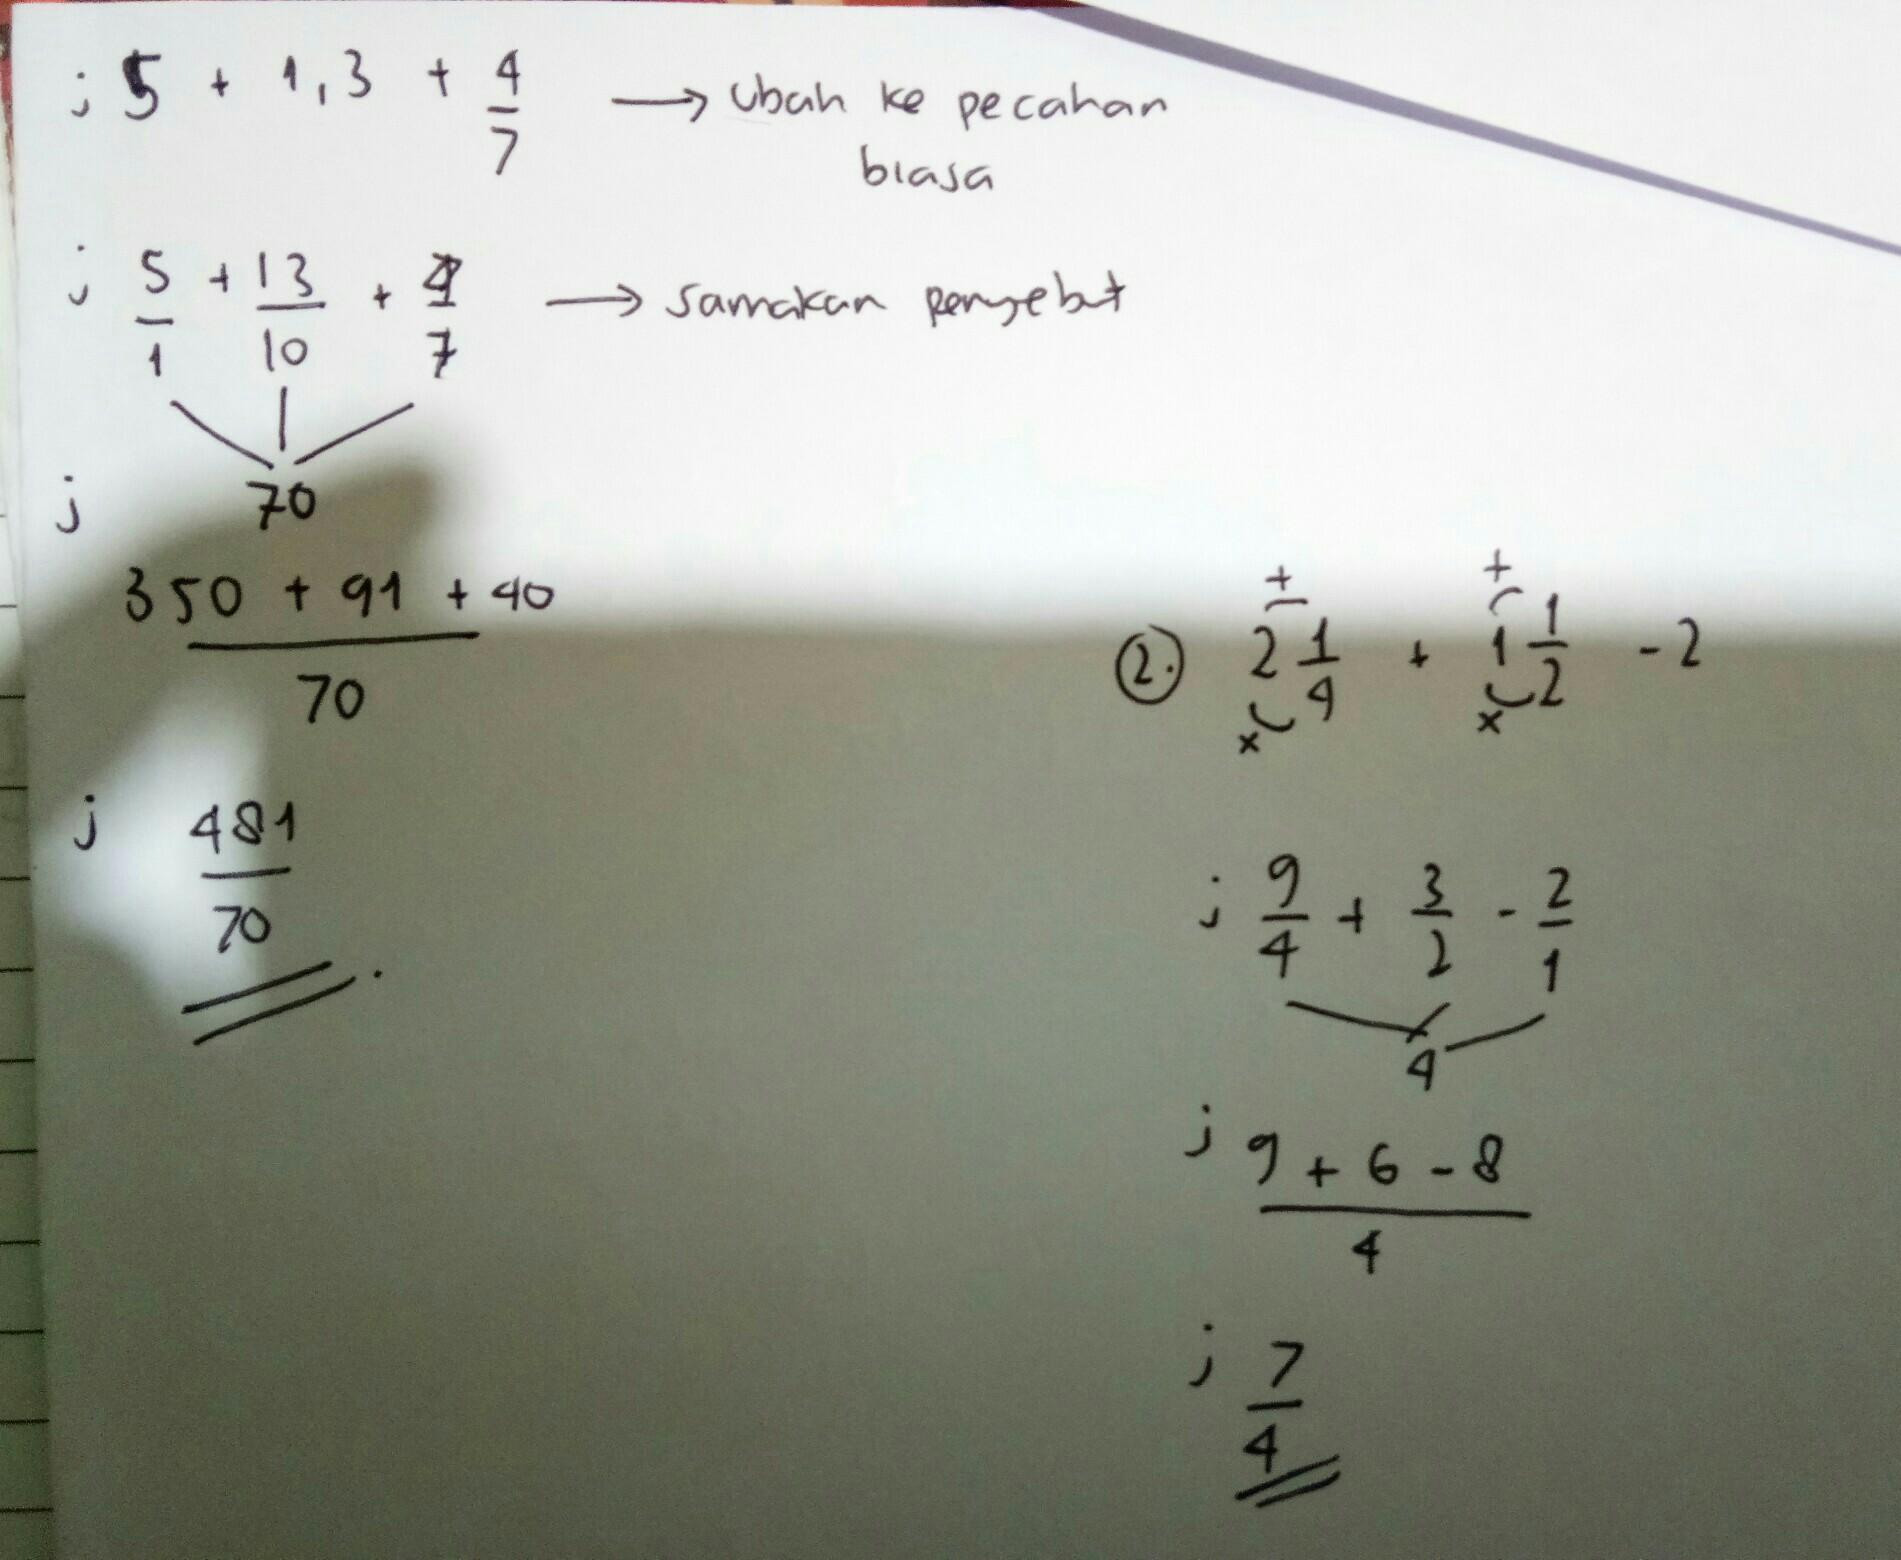 ; 5 + 1,3 + 4/7 → Ubah ke pecahan
biasa
j 5/1 + 13/10 + 4/7 → samakan penyebut
j 70
350 + 91 + 40
70
j 481/70 .
+ +
2. 2 1/4 + 1 1/2 - 2
x x
j 9/4 + 3/2 - 2/1
4
j 9 + 6 - 8
4
j 7/4